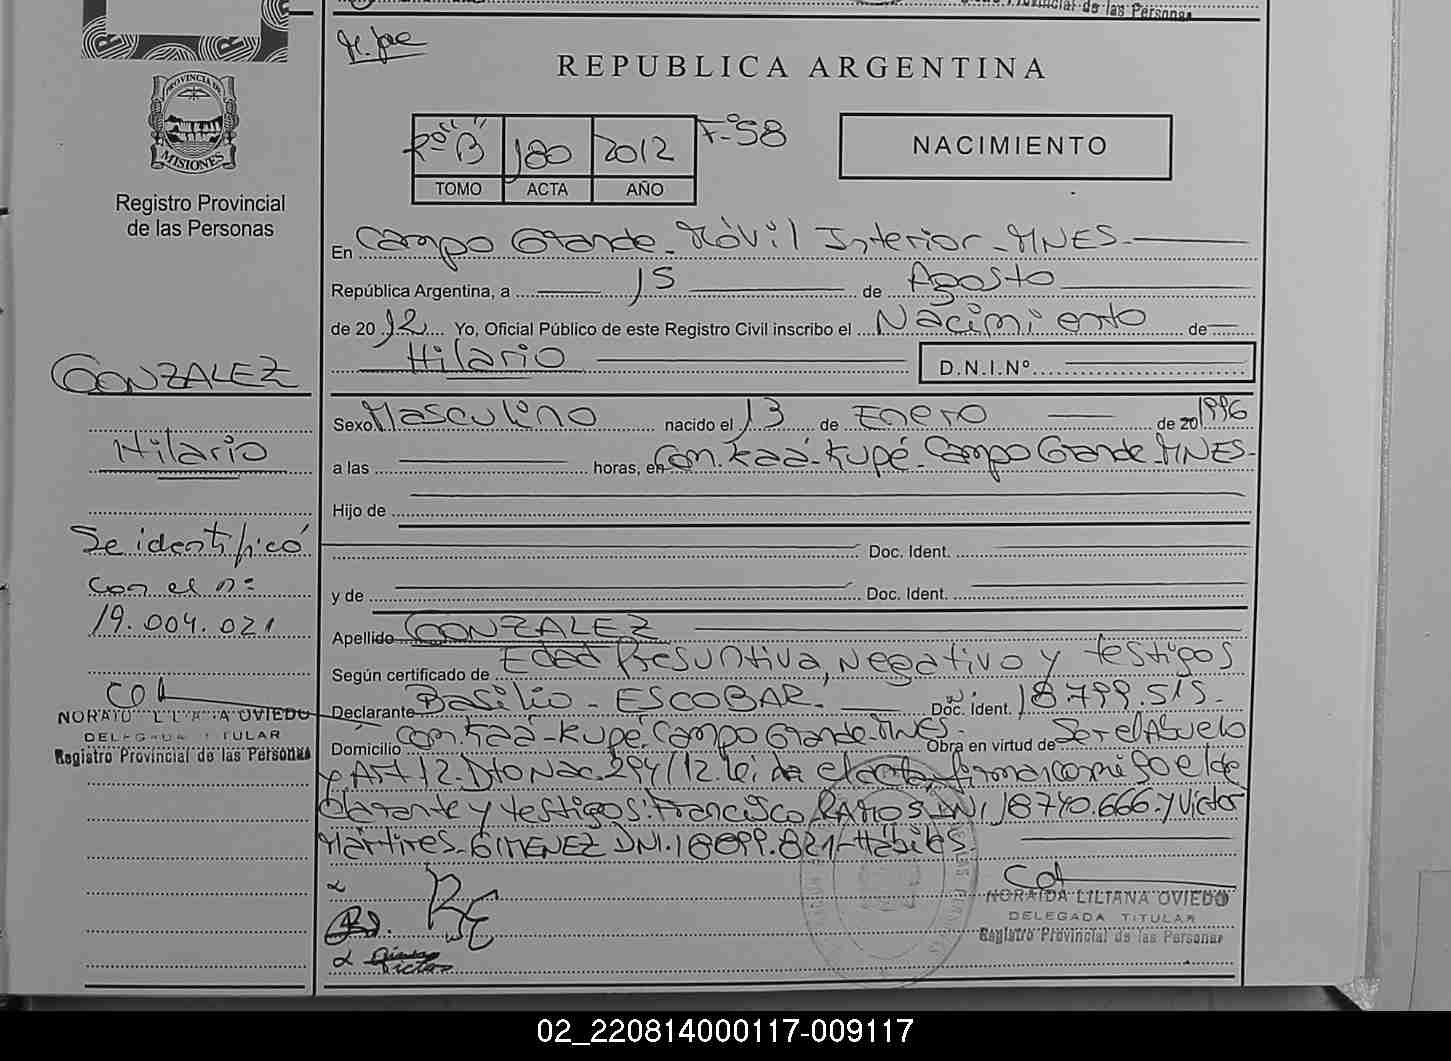 Provincial de las Personas
REPUBLICA ARGENTINA
PROVINCIA DE
MISIONES
Registro Provincial
de las Personas
Rº "B" 180 2012 Fº 58
TOMO ACTA AÑO
NACIMIENTO
En Campo Grande - Móvil Interior - MNES -
República Argentina, a 15 de Agosto
de 2012 Yo, Oficial Público de este Registro Civil inscribo el Nacimiento de
Hilario
D.N.I.Nº
GONZALEZ
Hilario
Se identificó
con el nº
19.004.021
NORAIDA LILIANA OVIEDO
DELEGADA TITULAR
Registro Provincial de las Personas
Sexo Masculino nacido el 13 de Enero de 20 1996
a las horas, en Com. Kaá-Kupé - Campo Grande - MNES -
Hijo de
Doc. Ident.
y de Doc. Ident.
Apellido GONZALEZ
Según certificado de Edad Presuntiva, Negativo y testigos
Declarante Basilio - ESCOBAR. Doc. Ident. 18.799.515.
Domicilio Com. Kaá-Kupé. Campo Grande - MNES - Obra en virtud de Ser el Abuelo
y Art 12. Dto Nac. 294/12. Leída el acta, firma conmigo el de
clarante y testigos: Francisco RAMOS DNI 18740.666. y Victor
Mártires - GIMENEZ DNI. 18899.821 - Hábiles.
NORAIDA LILIANA OVIEDO
DELEGADA TITULAR
Registro Provincial de las Personas
Victor
02_220814000117-009117